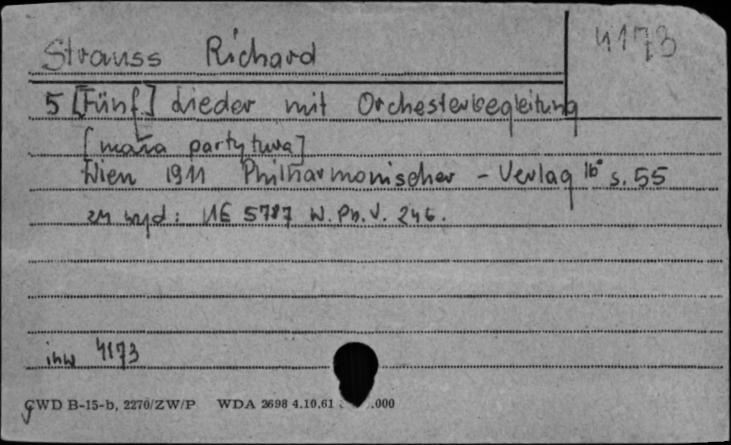 Strauss Richard 4173
5 [Fünf] Lieder mit Orchesterbegleitung
[mała partytura]
Wien 1911 Philharmonischer - Verlag 16° s. 55
zn wyd: UE 5787 W. Ph. V. 246.
inw 4173
CWD B-15-b, 2270/ZW/P WDA 2698 4.10.61 .000